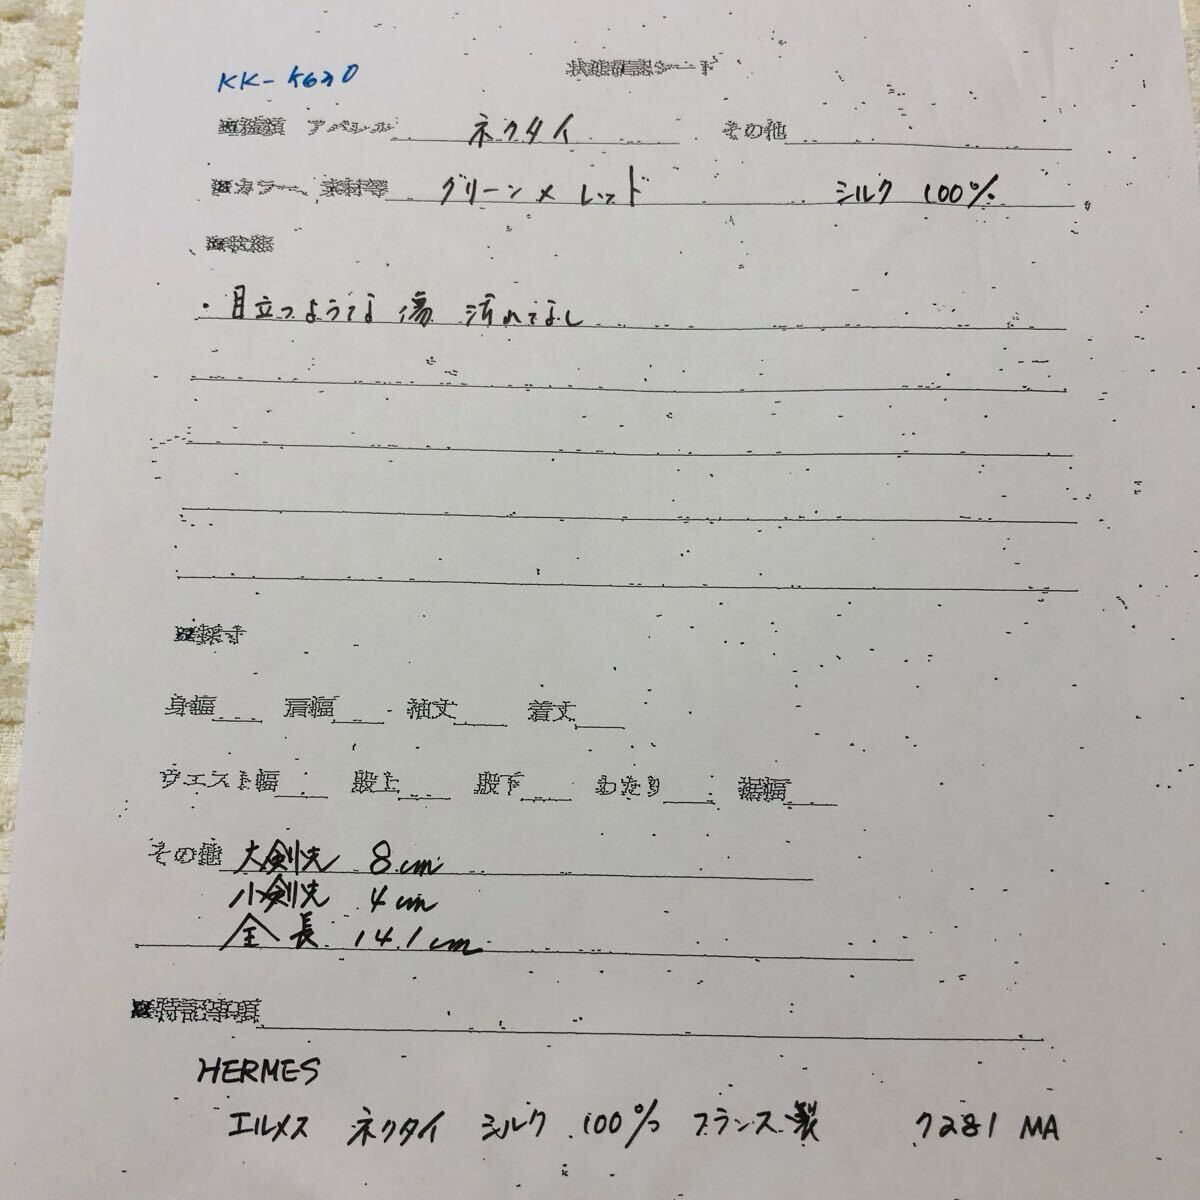 状態確認シート
KK-K630
※種類 アパレル ネクタイ その他
※カラー、素材等 グリーン×レッド シルク 100%
※状態
・目立つような傷 汚れてなし
※採寸
身幅 肩幅 袖丈 着丈
ウエスト幅 股上 股下 わたり 裾幅
その他 大剣先 8cm
小剣先 4cm
全長 141cm
※特記事項
HERMES
エルメス ネクタイ シルク 100% フランス製 7281 MA